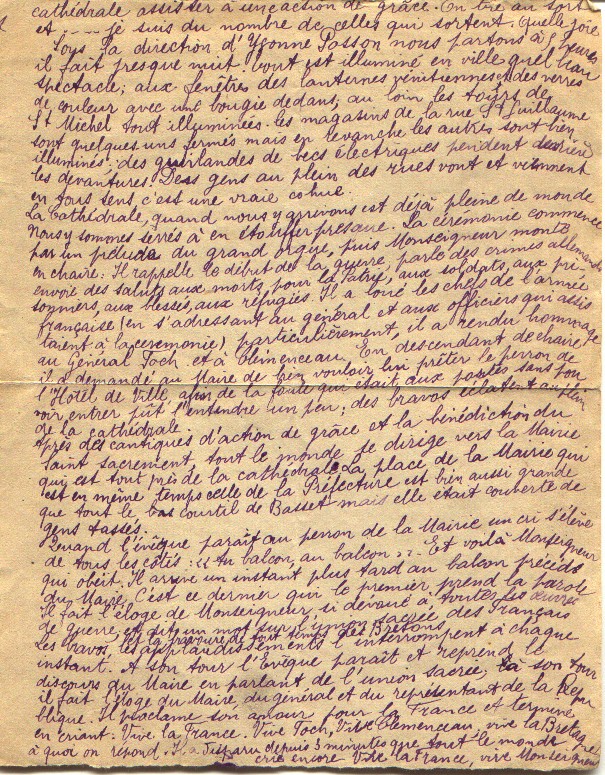 cathédrale assister à une action de grâce. On tire au sort
et ---- je suis du nombre de celles qui sortent. Quelle joie
Sous la direction d'Yvonne Passon nous partons à 5 heures
il fait presque nuit. Tout est illuminé en ville quel beau
spectacle; aux fenêtres des lanternes vénitiennes, des verres
de couleur avec une bougie dedans; au loin les tours de
St Michel tout illuminées. les magasins de la rue St Guillaume
sont quelques uns fermés mais en revanche les autres sont bien
illuminés: des guirlandes de becs électriques pendent derrière
les devantures. Des gens au plein des rues vont et viennent
en tous sens, c'est une vraie cohue.
La Cathédrale, quand nous y arrivons est déjà pleine de monde
Nous y sommes serrés à en étouffer presque. La cérémonie commence
par un prélude du grand orgue, puis Monseigneur monte
en chaire. Il rappelle le début de la guerre, parle des crimes allemands
envoie des saluts aux morts pour la Patrie, aux soldats, aux pri-
sonniers, aux blessés, aux refugiés. Il a loué les chefs de l'armée
française (en s'adressant au général et aux officiers qui assis
taient à la cérémonie) particulièrement, il a rendu hommage
au Général Foch et à Clémenceau. En descendant de chaire,
il a demandé au Maire de bien vouloir lui prêter le perron de
l'Hôtel de Ville afin de la foule qui était aux portes sans pou
voir entrer pût l'entendre un peu; des bravos éclatent au plein
de la cathédrale.
Après des cantiques d'action de grâce et la bénédiction du
Saint sacrement, tout le monde se dirige vers la Mairie
qui est tout près de la cathédrale. La place de la Mairie qui
est en même temps celle de la Préfecture est bien aussi grande
que tout le bas courtil de Basset mais elle était couverte de
gens tassés.
Quand l'évêque paraît au perron de la Mairie un cri s'élève
de tous les côtés: "Au balcon, au balcon". Et voilà Monseigneur
qui obéit. Il arrive un instant plus tard au balcon précédé
du Maire. C'est ce dernier qui le premier prend la parole
Il fait l'éloge de Monseigneur, si dévoué à toutes les œuvres
de Guerre, et dit un mot sur l'union sacrée des Français
et la bravoure de tout temps des Bretons.
Les bravos, les applaudissements l'interrompent à chaque
instant. A son tour l'Evêque paraît et reprend le
discours du Maire en parlant de l'union sacrée; à son tour
il fait l'éloge du Maire, du général et du représentant de la Répu
blique. Il proclame son amour pour la France et termine
en criant: Vive la France. Vive Foch, Vive Clemenceau, vive la Bretagne
à quoi on répond. Il a disparu depuis 5 minutes que tout le monde
crie encore Vive la France, vive Monseigneur